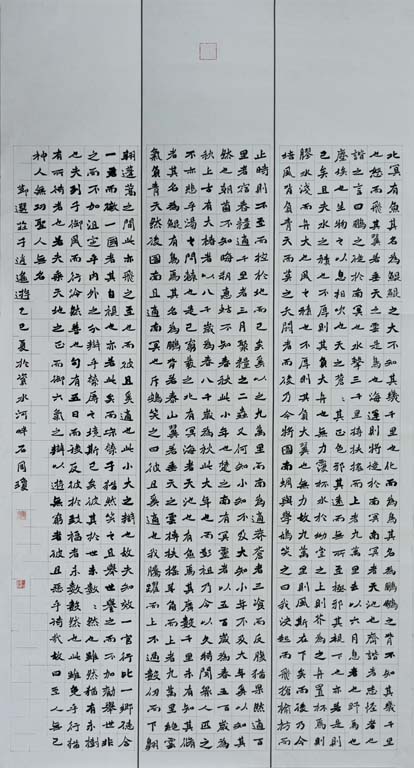 北冥有魚其名為鯤鯤之大不知其幾千里也化而為鳥其名為鵬鵬之大不知其幾千里
也怒而飛其翼若垂天之雲是鳥也海運則將徙於南冥南冥者天池也齊諧者志怪者也
諧之言曰鵬之徙於南冥也水擊三千里摶扶搖而上者九萬里去以六月息者也野馬也
塵埃也生物之以息相吹也天之蒼:其正色邪其遠而無所至極邪其視下也亦若是則
已矣且夫水之積也不厚則其負大舟也無力覆杯水於坳堂之上則芥為之舟置杯焉則
膠水淺而舟大也風之積也不厚則其負大翼也無力故九萬里則風斯在下矣而後乃今
培風背負青天而莫之夭閼者而後乃今將圖南蜩與學鳩笑之曰我決起而飛搶榆枋而
止時則不至而控於地而已矣奚以之九萬里而南為適莽蒼者三飡而反腹猶果然適百
里者宿舂糧適千里者三月聚糧之二蟲又何知小知不及大知小年不及大年奚以知其
然也朝菌不知晦朔蟪蛄不知春秋此小年也楚之南有冥靈者以五百歲為春五百歲為
秋上古有大椿者以八千歲為春八千歲為秋此大年也而彭祖乃今以久特聞眾人匹之
不亦悲乎湯之問棘也是已窮髮之北有冥海者天池也有魚焉其廣數千里未有知其脩
者其名為鯤有鳥焉其名為鵬背若泰山翼若垂天之雲摶扶搖羊角而上者九萬里絕雲
氣負青天然後圖南且適南冥也斥鴳笑之曰彼且奚適也我騰躍而上不過數仞而下翱
翔蓬蒿之間此亦飛之至也而彼且奚適也此小大之辯也故夫知效一官行比一鄉德合
一君而徵一國者其自視也亦若此矣而宋榮子猶然笑之且舉世譽之而不加勸舉世非
之而不加沮定乎內外之分辯乎榮辱之境斯已矣彼其於世未數:然也雖然猶有未樹
也夫列子御風而行泠然善也旬有五日而後反彼於致福者未數數然也此雖免乎行猶
有所待者也若夫乘天地之正而御六氣之辯以遊無窮者彼且惡乎待哉故曰至人無己
神人無功聖人無名
節選莊子逍遙遊乙巳夏於資水河畔石周瓊